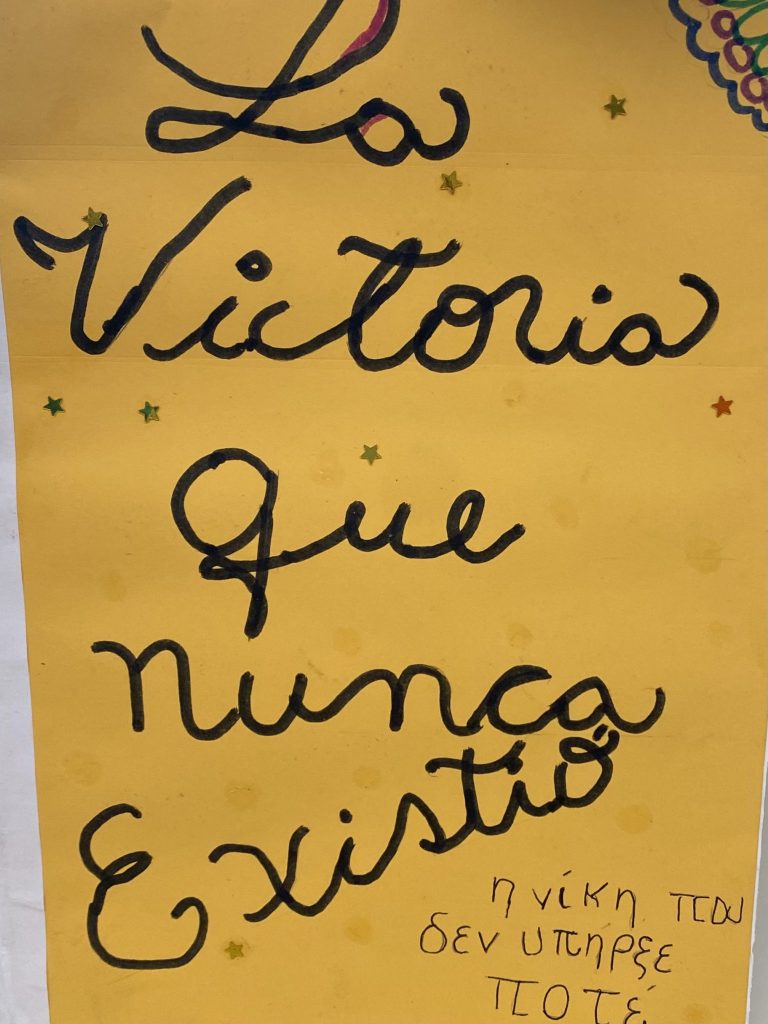 La
Victoria
Que
nunca
Existió
η νίκη που
δεν υπήρξε
ποτέ